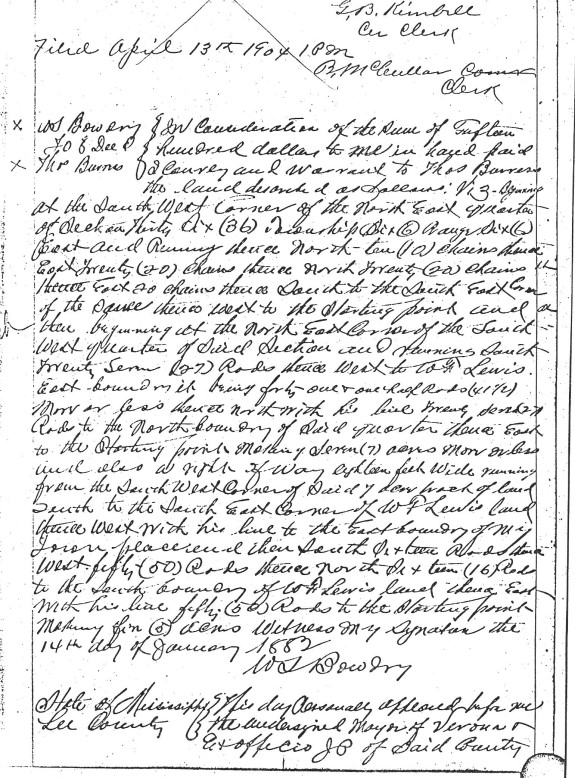 G.B. Kimbell
Cir Clerk
Filed April 13th 1904 1 PM
B. McCullar
Clerk
x W S Bowdry { In Consideration of the Sum of Fifteen
To { Deed { hundred dollars to me in hand paid
x Thos Burress { I Convey and Warrant to Thos Burress
the land described as follows: Viz- Beginning
at the South West Corner of the North East quarter
of Section Thirty Six (36) Township Six (6) Range Six (6)
East and Runing thence North ten (10) chains thence
East Twenty (20) Chains thence North Twenty (20) chains
thence East 20 chains thence South to the South East Corner
of the Same thence west to the Starting point and
then beginning at the North East Corner of the South
West quarter of Said Section and running South
Twenty Seven (27) Rods thence West to W F Lewis
East boundry it being forty one & one half Rods (41½)
More or less thence North with his line Twenty Seven 27
Rods to the North boundry of Said quarter thence East
to the Starting point Making Seven (7) acres More or less
and also a right of Way eighteen feet Wide running
from the South West Corner of Said 7 acre tract of land
South to the South East Corner of W F Lewis land
thence West With his line to the East boundry of My
place and then South Sixteen Rods thence
West fifty (50) Rods thence North Sixteen (16) Rods
to the South boundry of W F Lewis land thence East
With his line fifty (50) Rods to the Starting point
Making five (5) acres Witness My Signature the
14th day of January 1882
W S Bowdry
State of Mississippi } This day Personally appeared before me
Lee County } the undersigned Mayor of Verona &
Ex officio JP of Said County